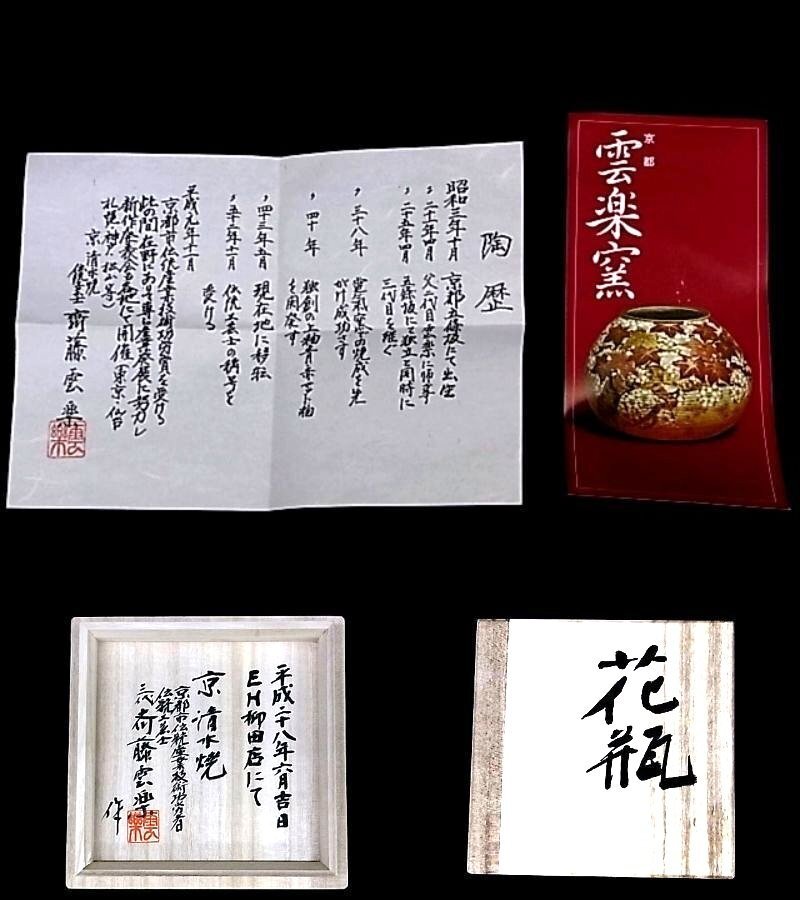 陶歴
昭和三年十月 京都五條坂にて出生
〃 二十年四月 父二代目雲楽に師事
〃 二十九年四月 五條坂に独立と同時に
三代目を継ぐ
〃 三十八年 電気窯の焼成を先
がけ成功さす
〃 四十年 独創の上釉青赤サビ釉
を開発す
〃 四十三年五月 現在地に移転
〃 五十二年十一月 伝統工芸士の称号を
受ける
平成元年十一月
京都市伝統産業技術功労賞を受ける
此の間在野にあって専ら産業発展に努力し
新作発表会を各地にて開催(東京・仙台
札幌・神戸・松山等)
京清水焼
伝統工芸士 齊藤雲楽
雲楽
京都
雲楽窯
平成二十八年六月吉日
EH柳田店にて
京清水焼
京都市伝統産業技術功労者
伝統工芸士
三代斉藤雲楽
作
雲楽
花瓶